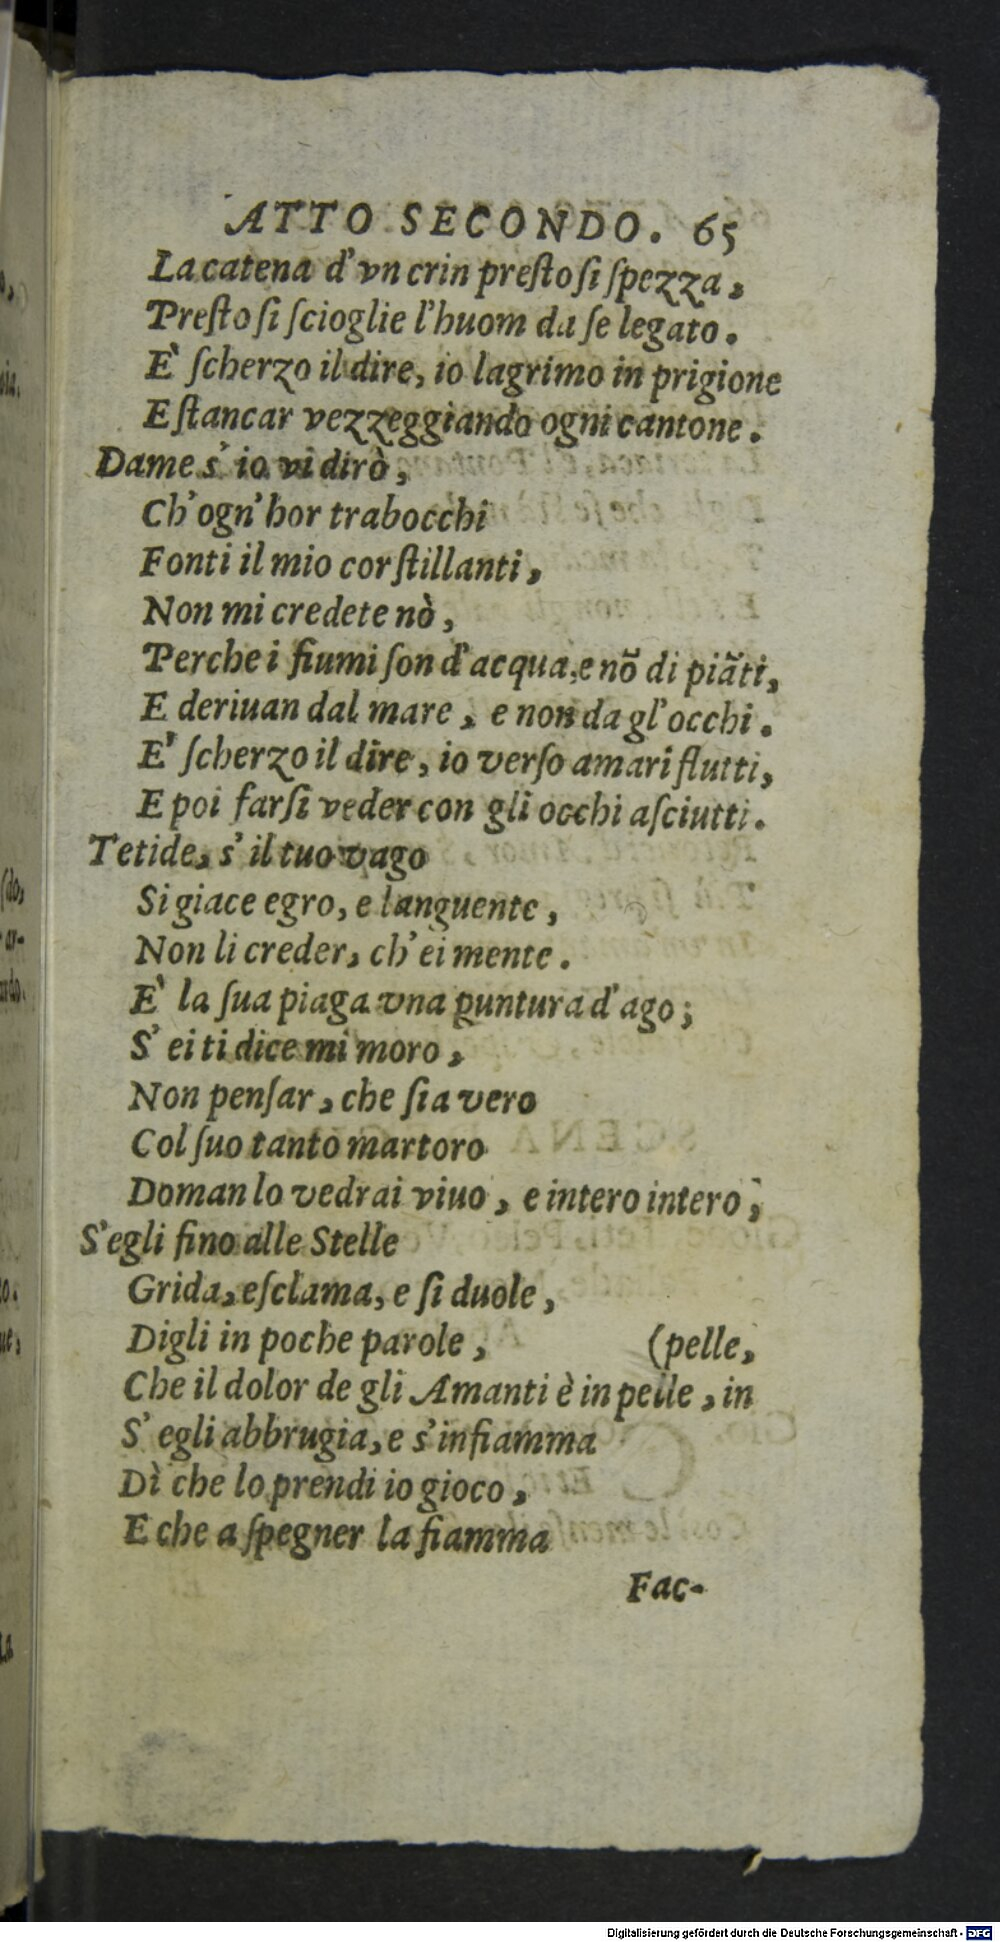 ATTO SECONDO. 65
La catena d'vn crin preſto ſi ſpezza,
Preſto ſi ſcioglie l'huom da ſe legato.
È ſcherzo il dire, io lagrimo in prigione
E ſtancar vezzeggiando ogni cantone.
Dame s'io vi dirò,
Ch'ogn'hor trabocchi
Fonti il mio cor ſtillanti,
Non mi credete nò,
Perche i fiumi ſon d'acqua, e nõ di piãti,
E deriuan dal mare, e non da gl'occhi.
E' ſcherzo il dire, io verſo amari flutti,
E poi farſi veder con gli occhi aſciutti.
Tetide, s'il tuo vago
Si giace egro, e languente,
Non li creder, ch'ei mente.
È la ſua piaga vna puntura d'ago;
S'ei ti dice mi moro,
Non penſar, che ſia vero
Col ſuo tanto martoro
Doman lo vedrai viuo, e intero intero;
S'egli fino alle Stelle
Grida, eſclama, e ſi duole,
Digli in poche parole, (pelle,
Che il dolor de gli Amanti è in pelle, in
S'egli abbrugia, e s'infiamma
Dì che lo prendi io gioco,
E che a ſpegner la fiamma
Fac-
Digitalisierung gefördert durch die Deutsche Forschungsgemeinschaft - DFG